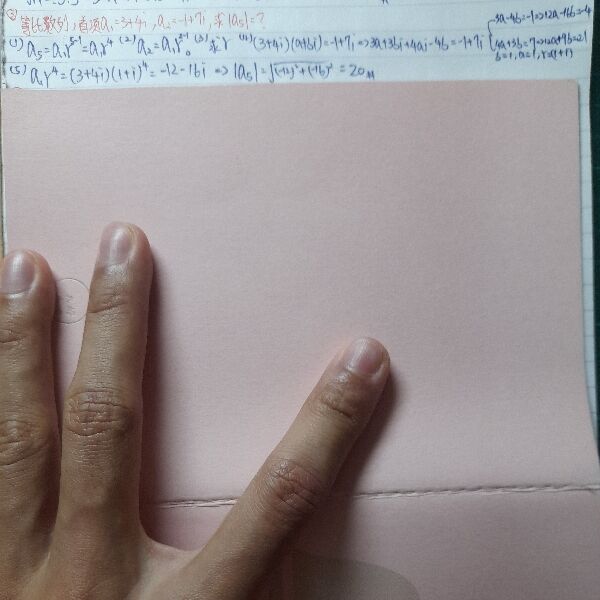 ③等比数列,首项a₁=3+4i,a₂=-1+7i,求|a₅|=?
(1) a₅=a₁r⁵⁻¹=a₁r⁴ (2) a₂=a₁r²⁻¹。(3)求r (4)(3+4i)(a+bi)=-1+7i⇒3a+3bi+4ai-4b=-1+7i
{3a-4b=-1⇒12a-16b=-4
4a+3b=7⇒12a+9b=21
b=1,a=1,r=(1+i)
(5) a₁r⁴=(3+4i)(1+i)⁴=-12-16i ⇒|a₅|=√(-12)²+(-16)²=20